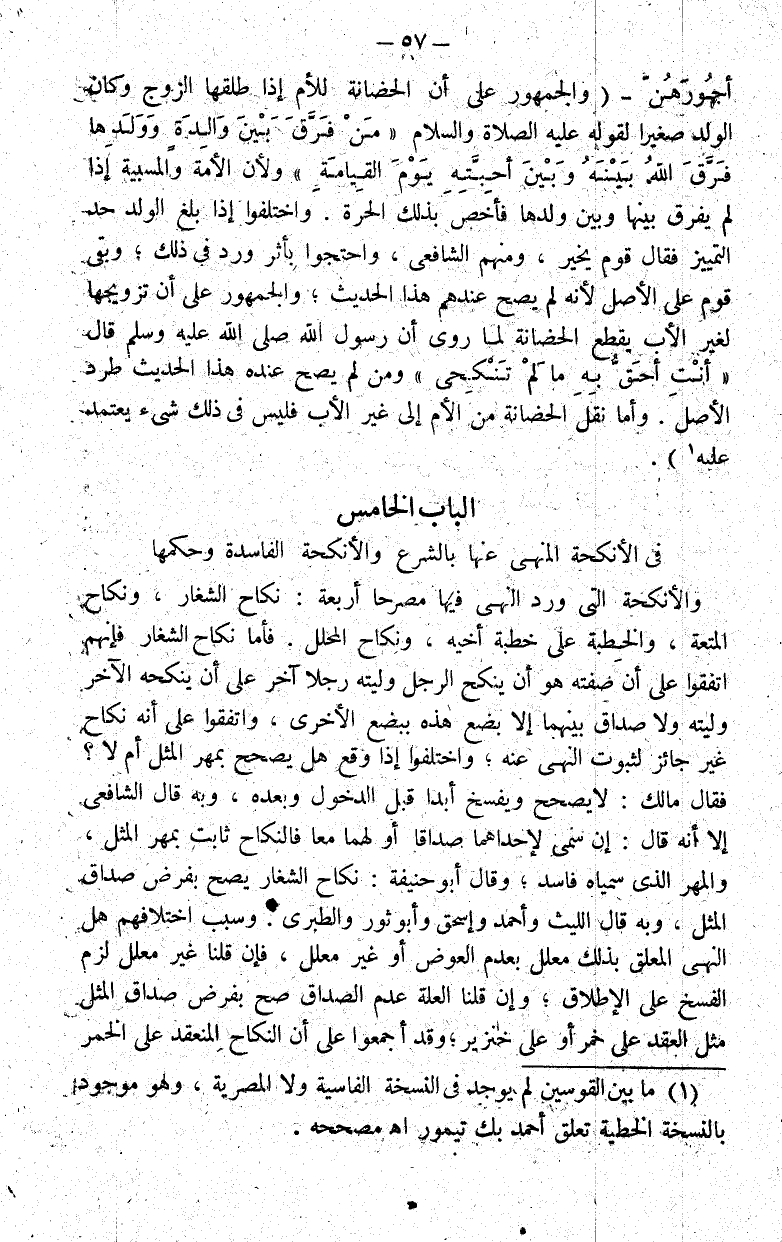 — ٥٧ —
أُجُورَهُنَّ - ( والجمهور على أن الحضانة للأم إذا طلقها الزوج وكان
الولد صغيرا لقوله عليه الصلاة والسلام « مَنْ فَرَّقَ بَيْنَ وَالِدَةٍ وَوَلَدِها
فَرَّقَ اللهُ بَيْنَهُ وَبَيْنَ أحِبَّتِهِ يَوْمَ القِيامَةِ » ولأن الأمة والمسبية إذا
لم يفرق بينها وبين ولدها فأخص بذلك الحرة . واختلفوا إذا بلغ الولد حد
التمييز فقال قوم يخير ، ومنهم الشافعى ، واحتجوا بأثر ورد فى ذلك ؛ وبقى
قوم على الأصل لأنه لم يصح عندهم هذا الحديث ؛ والجمهور على أن تزويجها
لغير الأب يقطع الحضانة لما روى أن رسول الله صلى الله عليه وسلم قال
« أنْتِ أحَقُّ بِهِ ما لَمْ تَنْكِحِى » ومن لم يصح عنده هذا الحديث طرد
الأصل . وأما نقل الحضانة من الأم إلى غير الأب فليس فى ذلك شىء يعتمد
عليه ١ ) .
الباب الخامس
فى الأنكحة المنهى عنها بالشرع والأنكحة الفاسدة وحكمها
والأنكحة التى ورد النهى فيها مصرحا أربعة : نكاح الشغار ، ونكاح
المتعة ، والخِطبة على خطبة أخيه ، ونكاح المحلل . فأما نكاح الشغار فإنهم
اتفقوا على أن صفته هو أن ينكح الرجل وليته رجلا آخر على أن ينكحه الآخر
وليته ولا صداق بينهما إلا بضع هذه ببضع الأخرى ، واتفقوا على أنه نكاح
غير جائز لثبوت النهى عنه ؛ واختلفوا إذا وقع هل يصحح بمهر المثل أم لا ؟
فقال مالك : لايصحح ويفسخ أبدا قبل الدخول وبعده ، وبه قال الشافعى
إلا أنه قال : إن سمى لإحداهما صداقا أو لهما معا فالنكاح ثابت بمهر المثل ،
والمهر الذى سمياه فاسد ؛ وقال أبوحنيفة : نكاح الشغار يصح بفرض صداق
المثل ، وبه قال الليث وأحمد وإسحق وأبوثور والطبرى . وسبب اختلافهم هل
النهى المعلق بذلك معلل بعدم العوض أو غير معلل ، فإن قلنا غير معلل لزم
الفسخ على الإطلاق ؛ وإن قلنا العلة عدم الصداق صح بفرض صداق المثل
مثل العقد على خمر أو على خنزير ؛ وقد أجمعوا على أن النكاح المنعقد على الخمر
(١) ما بين القوسين لم يوجد فى النسخة الفاسية ولا المصرية ، وهو موجود
بالنسخة الخطية تعلق أحمد بك تيمور اه مصححه .